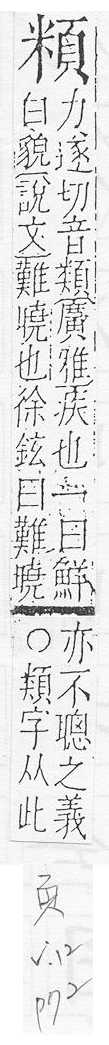 頪
力遂切音類廣雅疾也一曰鮮
白貌說文難曉也徐鉉曰難曉
亦不聰之義
○類字从此
頁
v.12
p72